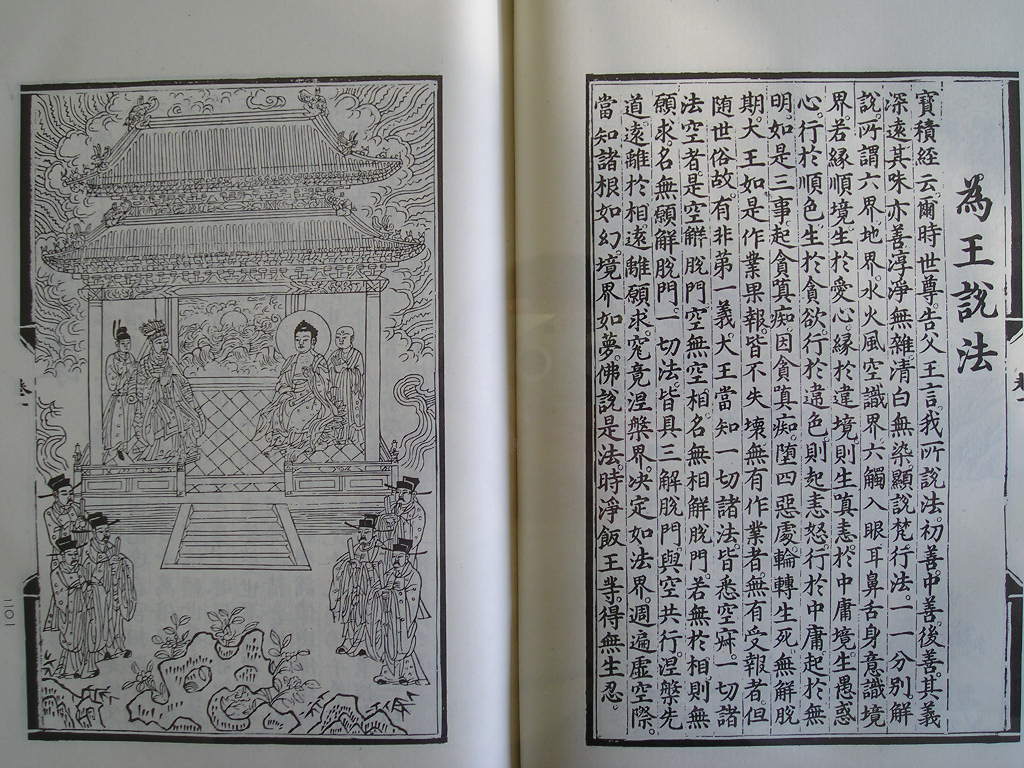 為王說法
寶積經云爾時世尊告父王言我所說法初善中善後善其義
深遠其味亦善淳淨無雜清白無染顯說梵行法一一分別解
說所謂六界地界水火風空識界六觸入眼耳鼻舌身意識境
界若緣順境生於愛心緣於違境則生嗔恚於中庸境生愚惑
心行於順色生於貪欲行於違色則起恚怒行於中庸起於無
明如是三事起貪嗔痴因貪嗔痴墮四惡處輪轉生死無解脫
期大王如是作業果報皆不失壞無有作業者無有受報者但
隨世俗故有非第一義大王當知一切諸法皆悉空寂一切諸
法空者是空解脫門空無空相名無相解脫門若無於相則無
願求名無願解脫門一切法皆具三解脫門與空共行涅槃先
道遠離於相遠離願求究竟涅槃界決定如法界週遍虛空際
當知諸根如幻境界如夢佛說是法時淨飯王等得無生忍
1101